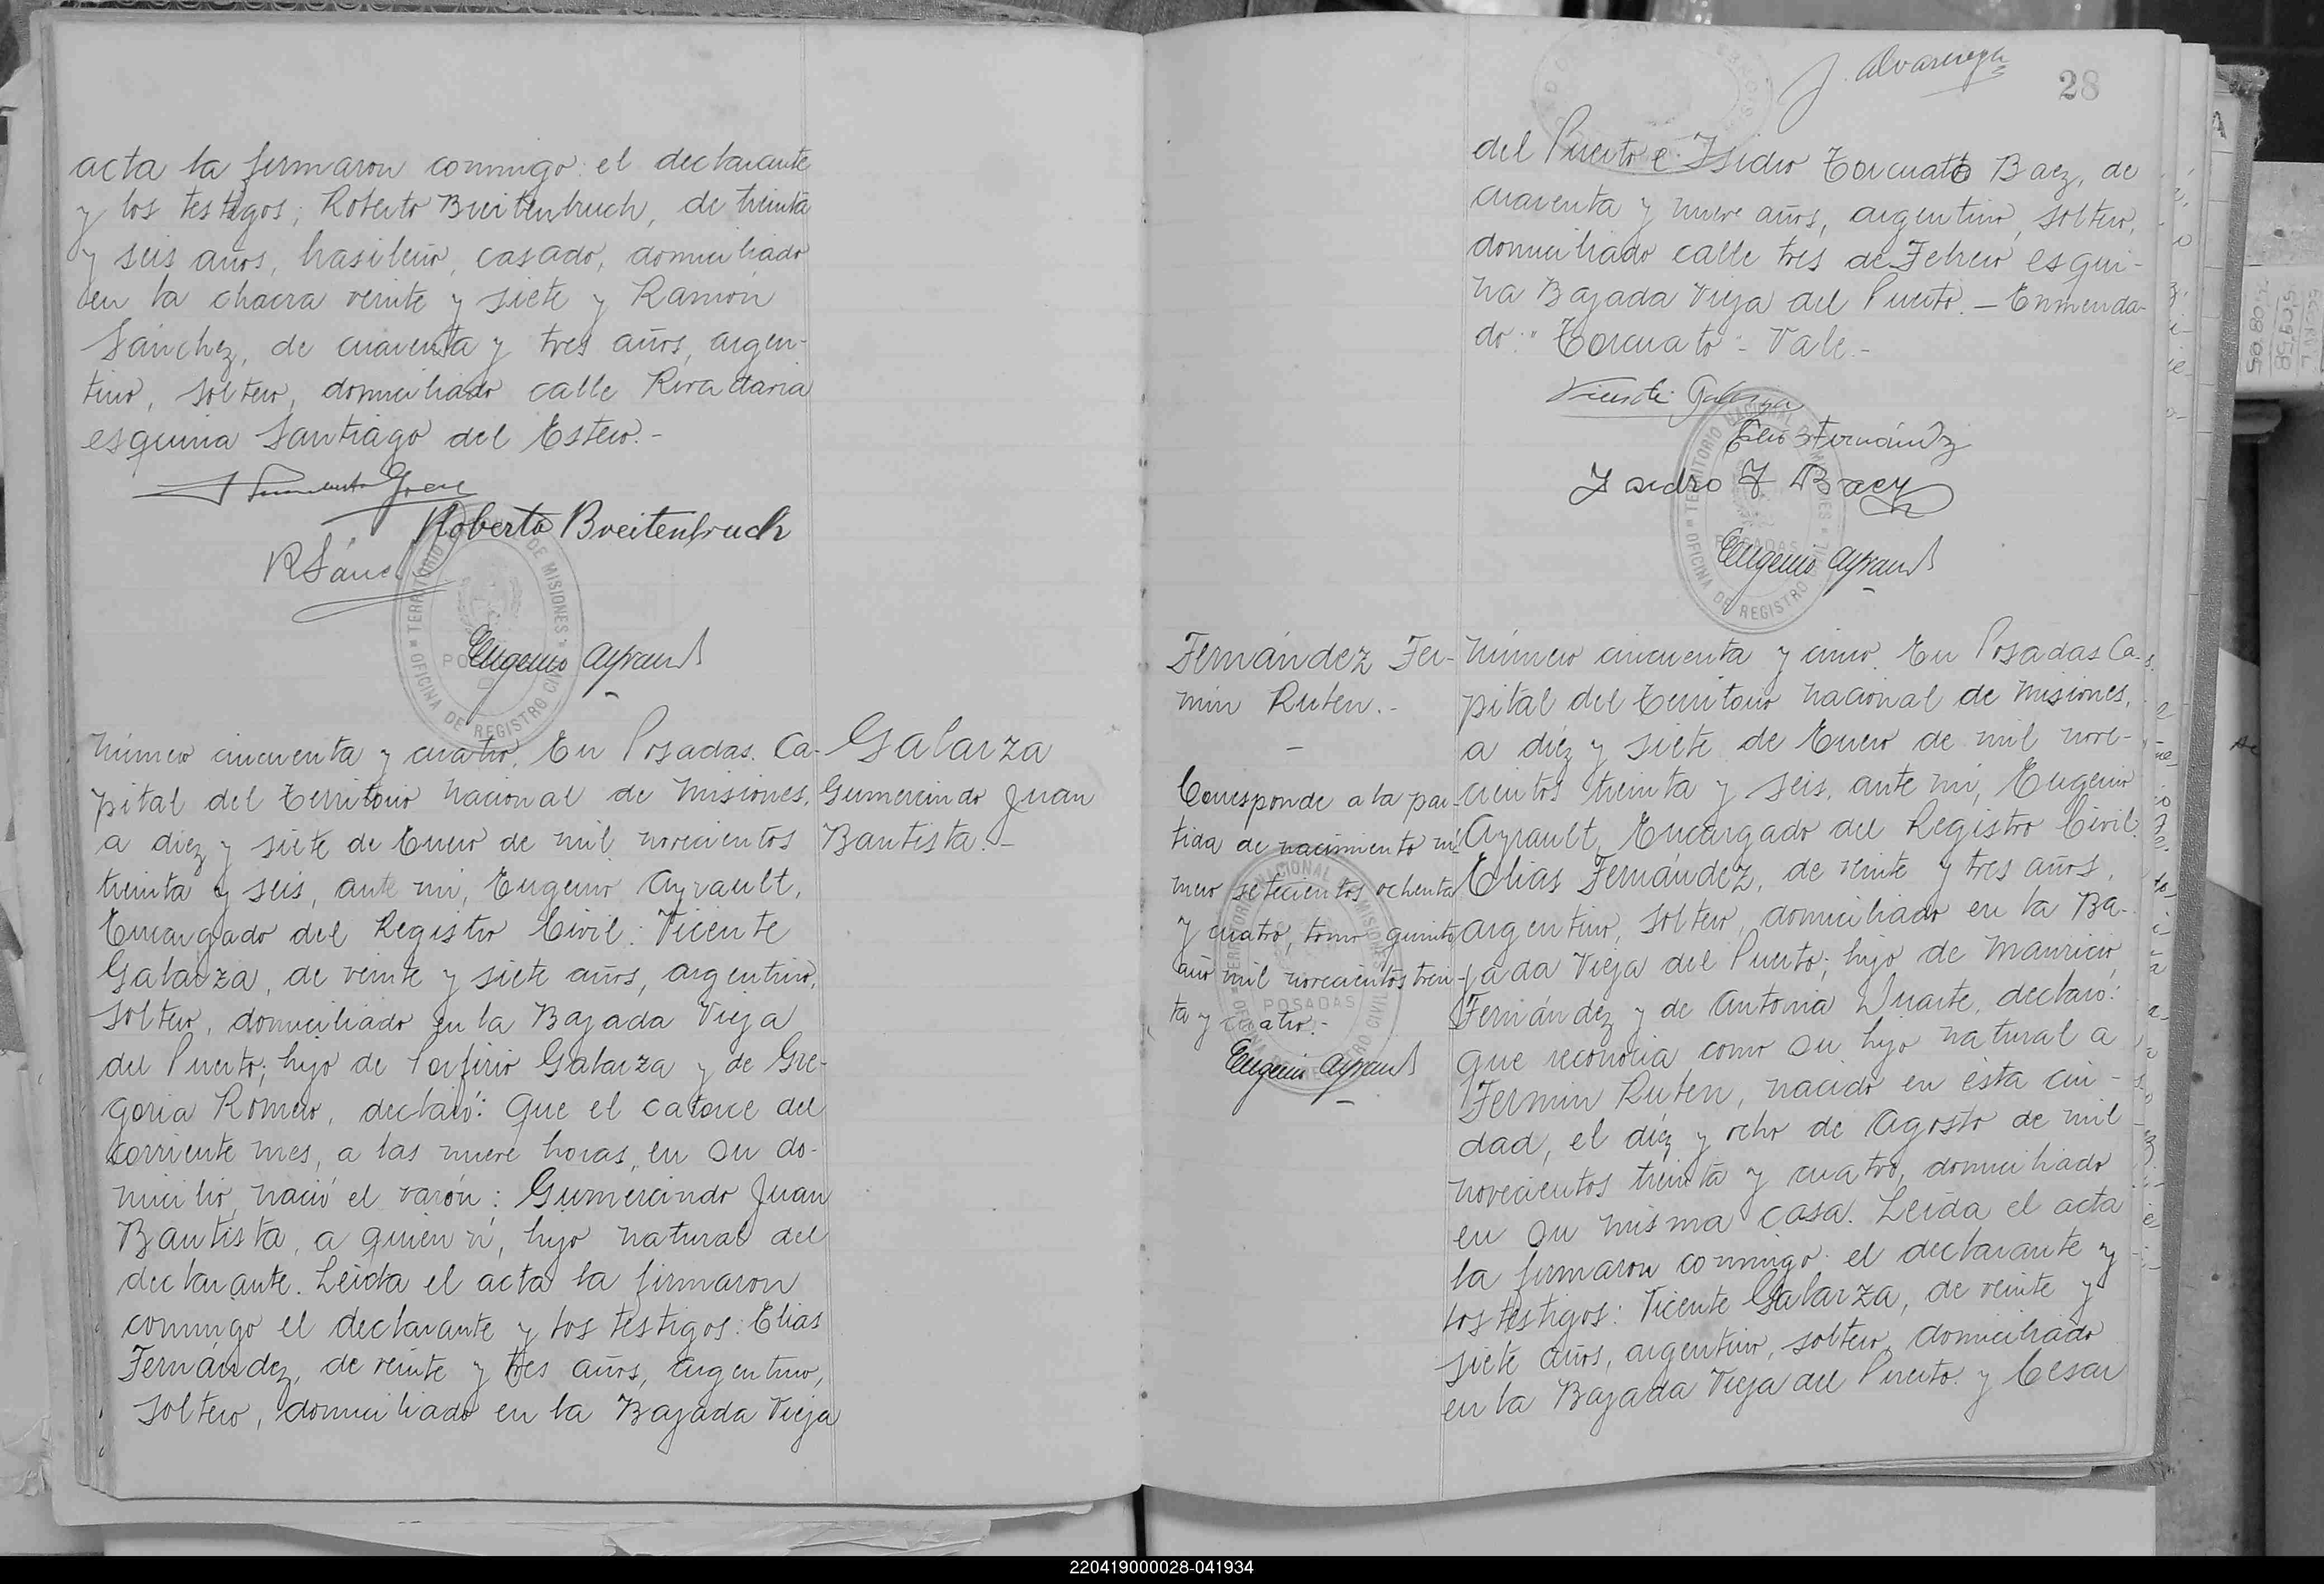 acta la firmaron conmigo: el declarante
y los testigos; Roberto Breitenbruch, de treinta
y seis años, brasileño, casado, domiciliado
en la chacra veinte y siete y Ramón
Sánchez, de cuarenta y tres años, argen-
tino, soltero, domiciliado calle Rivadavia
esquina Santiago del Estero.-
Roberto Breitenbruch
R Sánc
TERRITORIO DE MISIONES
OFICINA DE REGISTRO CIVIL
Eugenio Ayrault
Número cincuenta y cuatro. En Posadas. Ca-
pital del Territorio Nacional de Misiones,
a diez y siete de Enero de mil novecientos
treinta y seis, ante mi, Eugenio Ayrault,
Encargado del Registro Civil: Vicente
Galarza, de veinte y siete años, argentino,
soltero, domiciliado en la Bajada Vieja
del Puerto; hijo de Porfirio Galarza y de Gre-
goria Romero, declaró: Que el catorce del
corriente mes, a las nueve horas, en su do-
micilio, nació el varón: Gumercindo Juan
Bautista, a quien ví, hijo natural del
declarante. Leída el acta la firmaron
conmigo el declarante y los testigos: Elias
Fernández, de veinte y tres años, argentino,
soltero, domiciliado en la Bajada Vieja
Galarza
Gumercindo Juan
Bautista.-
J. Alvarenga
28
del Puerto e Isidro Torcuato Baez, de
cuarenta y nueve años, argentino, soltero,
domiciliado calle tres de Febrero esqui-
na Bajada Vieja del Puerto.- Enmenda-
do: "Torcuato"- Vale.-
Vicente Galarza
Elias Fernández
Isidro T Baez
TERRITORIO NACIONAL DE MISIONES
POSADAS
OFICINA DE REGISTRO CIVIL
Eugenio Ayrault
Fernández Fer-
min Ruben.-
Corresponde a la par
tida de nacimiento nú-
mero setecientos ochenta
y cuatro, tomo quinto
año mil novecientos trein-
ta y cuatro.-
TERRITORIO NACIONAL DE MISIONES
POSADAS
Eugenio Ayrault
Número cincuenta y cinco. En Posadas Ca-
pital del Territorio Nacional de Misiones,
a diez y siete de Enero de mil nove-
cientos treinta y seis, ante mi, Eugenio
Ayrault, Encargado del Registro Civil:
Elias Fernández, de veinte y tres años,
argentino, soltero, domiciliado en la Ba-
jada Vieja del Puerto; hijo de Mauricio
Fernández y de Antonia Duarte, declaró:
que reconocía como su hijo natural a
Fermin Ruben, nacido en ésta ciu-
dad, el diez y ocho de Agosto de mil
novecientos treinta y cuatro, domiciliado
en su misma casa. Leída el acta
la firmaron conmigo: el declarante y
los testigos: Vicente Galarza, de veinte y
siete años, argentino, soltero, domiciliado
en la Bajada Vieja del Puerto y Cesar
220419000028-041934